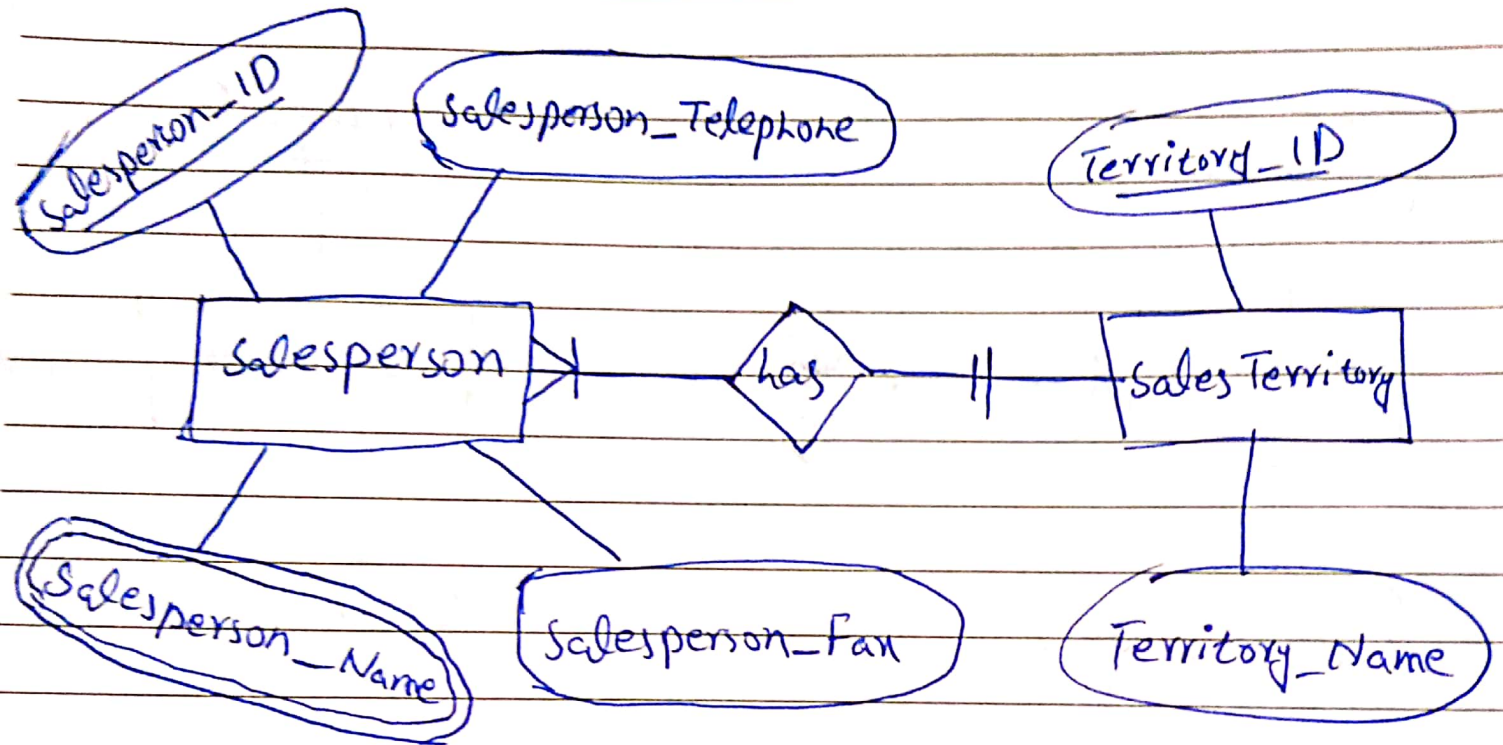 Salesperson_ID
Salesperson_Telephone
Territory_ID
Salesperson
has
Sales Territory
Salesperson_Name
Salesperson_Fax
Territory_Name